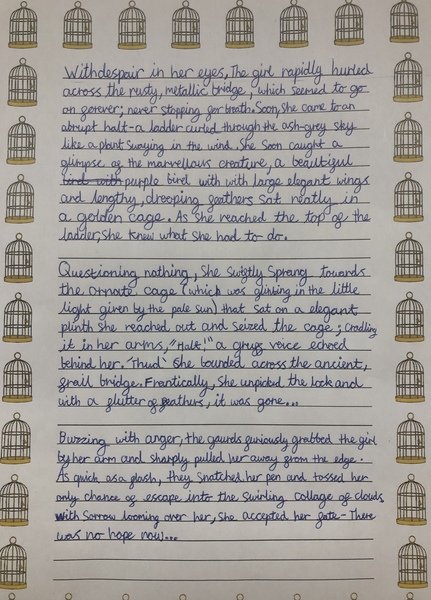 With despair in her eyes, The girl rapidly hurled
across the rusty, metallic bridge, which seemed to go
on forever; never stopping for breath. Soon, She came to an
abrupt halt-a ladder curled through the ash-grey sky
like a plant swaying in the wind. She soon caught a
glimpse of the marvellous creature, a beautiful
bird with purple bird with with large elegant wings
and lengthy, drooping feathers sat neatly in
a golden cage. As she reached the top of the
ladder, She knew what she had to do.
Questioning nothing, She swiftly sprang towards
the ornate cage (which was glinting in the little
light given by the pale sun) that sat on a elegant
plinth she reached out and seized the cage; Cradling
it in her arms, "Halt!" a gruff voice echoed
behind her. 'Thud' She bounded across the ancient,
frail bridge. Frantically, She unpicked the lock and
with a flutter of feathers, it was gone...
Buzzing with anger, the gaurds furiously grabbed the girl
by her arm and sharply pulled her away from the edge.
As quick as a flash, they Snatched her pen and tossed her
only chance of escape into the Swirling collage of clouds
With Sorrow looming over her, She accepted her fate - There
was no hope now...